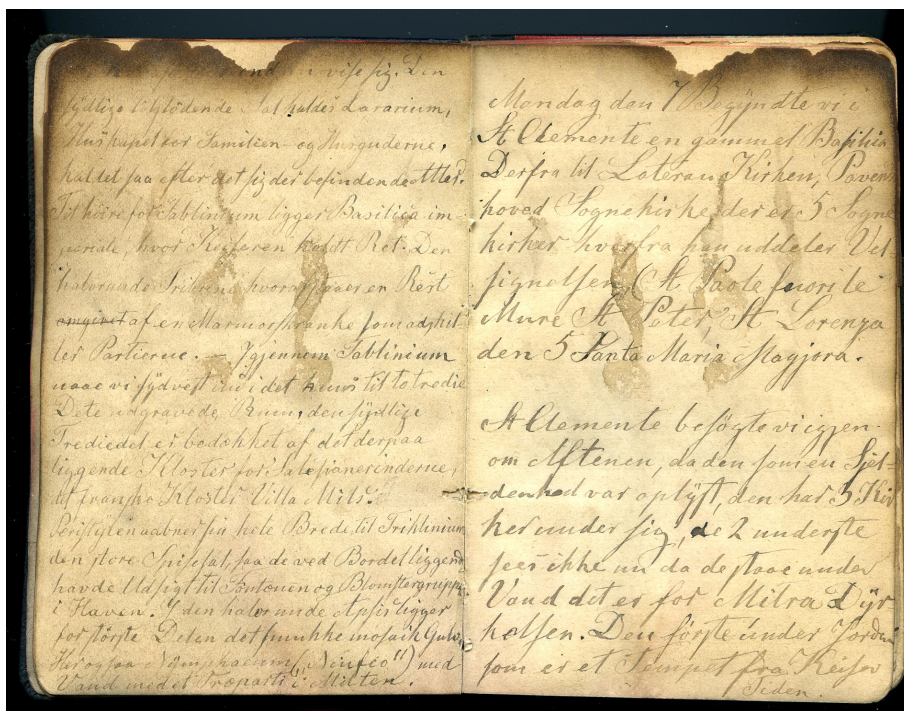 vise sig. Den
sydlige tilstödende Sal kaldes Lararium,
Huskapel for Familien- og Husguderne,
kaldet saa efter det sig der befindende Alter.
Til höire for Tablinium ligger Basilica im-
periale, hvor Keiseren holdt Ret. Den
halvrunde Tribuna hvoraf staaer en Rest
omgivet af en Marmorskranke som adskil-
ler Partierne. — Igjennem Tablinium
naae vi sydvest ind i det kuns til to tredie
Dele udgravede Rum, den sydlige
Trediedel er bedækket af det derpaa
liggende Kloster for Salesianerinderne,
af franske Kloster Villa Mils.
Peristylen aabner sin hele Brede til Triklinium
den store Spisesal, saa de ved Bordet liggende
havde Udsigt til Fontænen og Blomstergrupper
i Haven. I den halvrunde Apsis ligger
for störste Delen det smukke mosaik Gulv,
Her ogsaa Nÿmphaeum („Ninfeo") med
Vand med et Træparti i Midten.
Mandag den 7 Begyndte vi i
St Clemente en gammel Basilica
Derfra til Lateran Kirken, Paven
hoved Sognekirke, der er 5 Sogne
kirker hvorfra han uddeler Vel
signelsen (St Paole fuori le
Mure St Peter, St Lorenza
den 5 Santa Maria Magjora.
St Clemente besögte vi igjen
om Aftenen, da den som en Sjel-
denhed var oplÿst, den har 3 Kir
ker under sig, de 2 underste
sees ikke nu da de staae under
Vand det er for Mitra Dÿr
kelsen. Den förste under Jorden
som er et Tempel fra Keiser
Tiden.